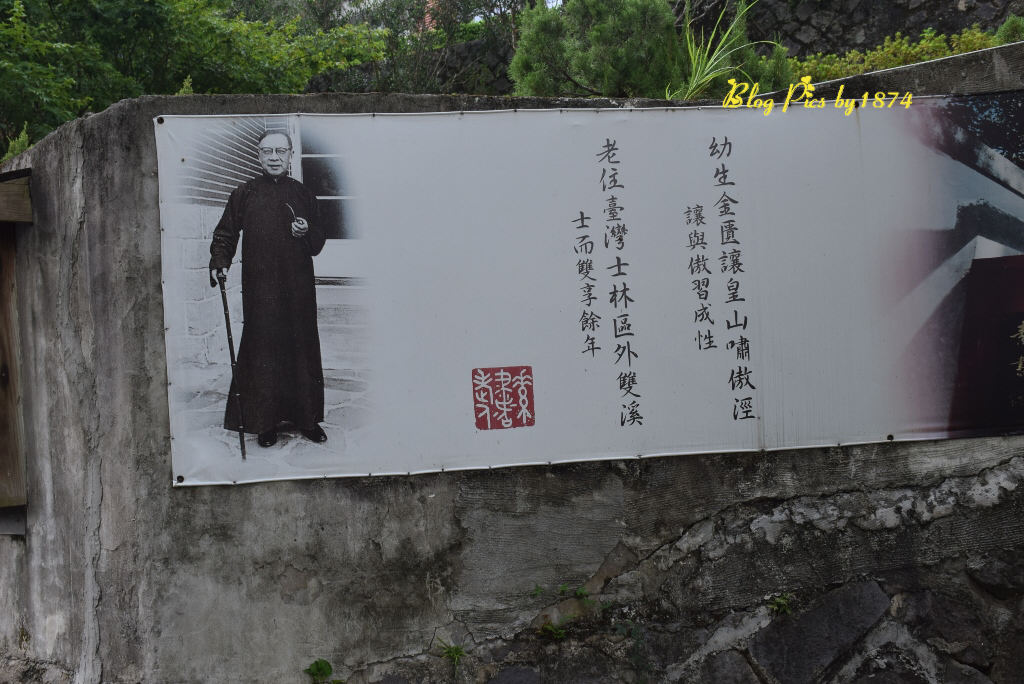 Blog Pics by1874
幼生金匱讓皇山嘯傲涇
讓與傲習成性
老住臺灣士林區外雙溪
士而雙享餘年